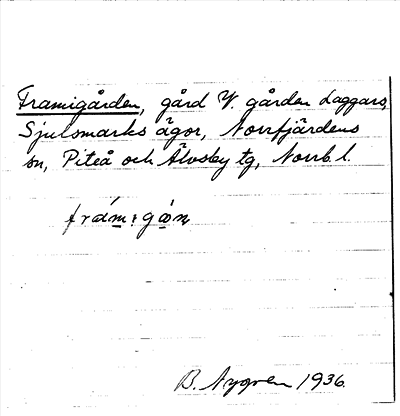 Framigården, gård V. gården Laggars,
Sjulsmarks ägor, Norrfjärdens
sn, Piteå och Älvsby tg, Norrb. l.
frám:gȧ̊ṇ
B. Nygren 1936.